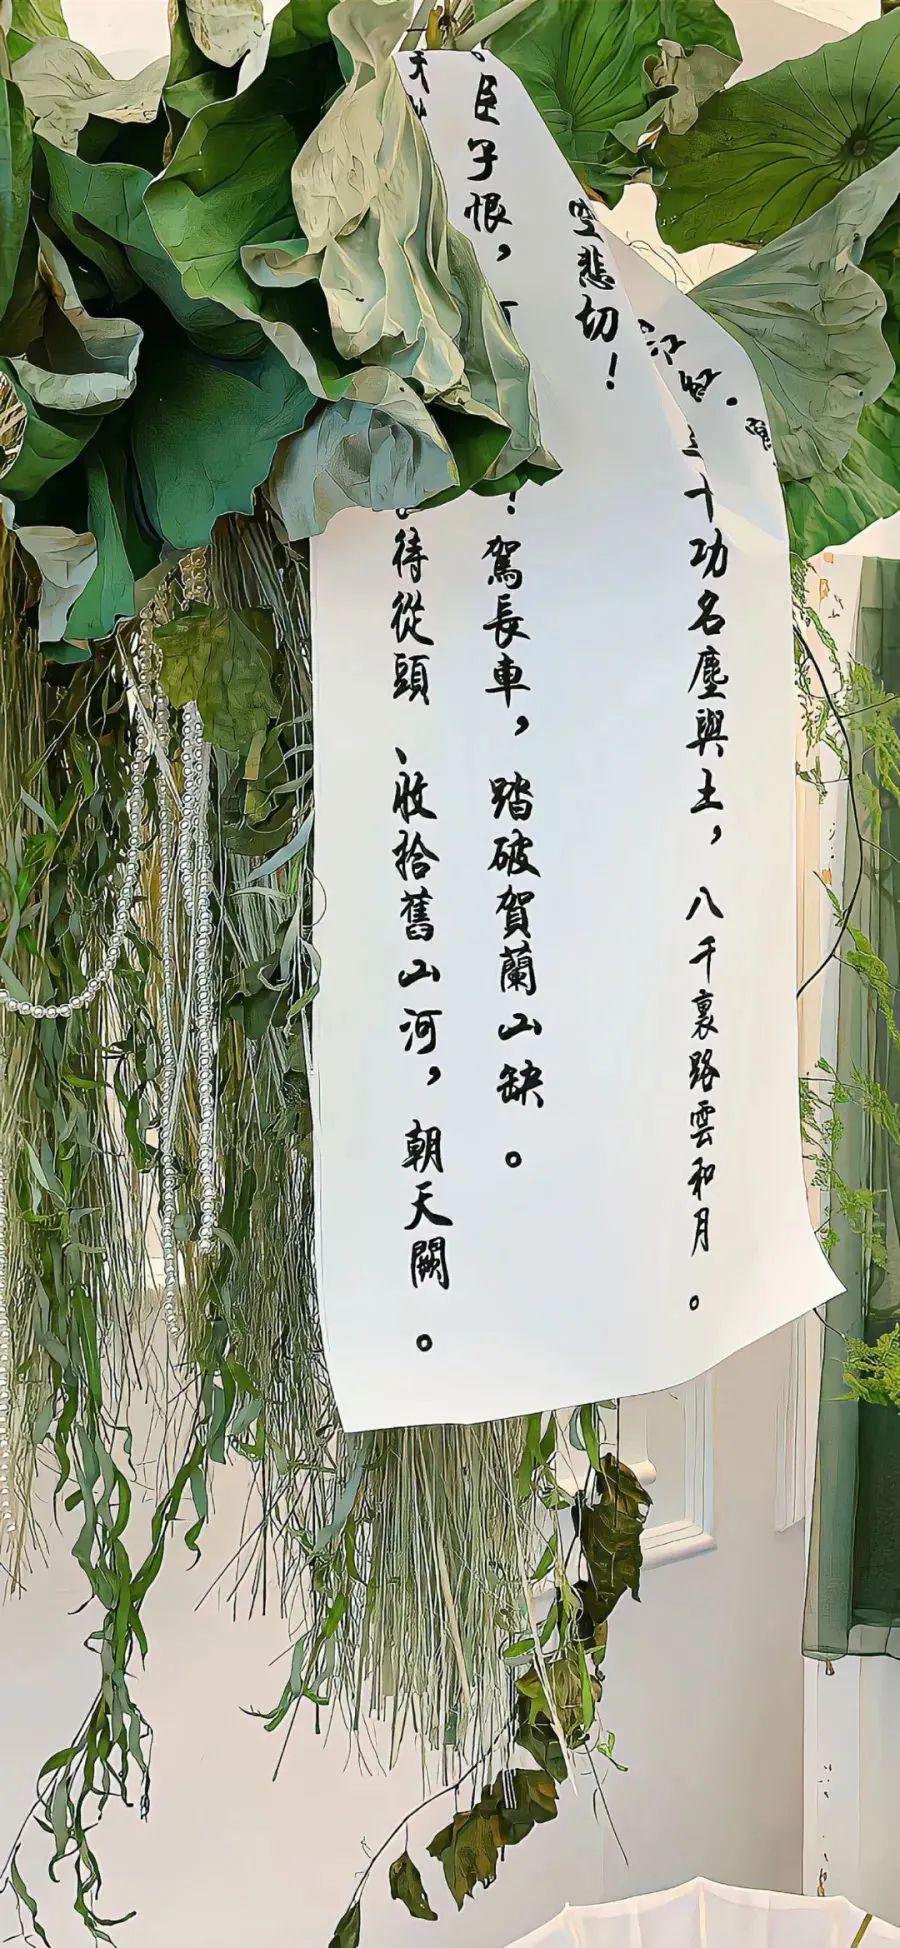 江紅·
十功名塵與土，八千裏路雲和月。
空悲切！
臣子恨，！駕長車，踏破賀蘭山缺。
。待從頭、收拾舊山河，朝天闕。